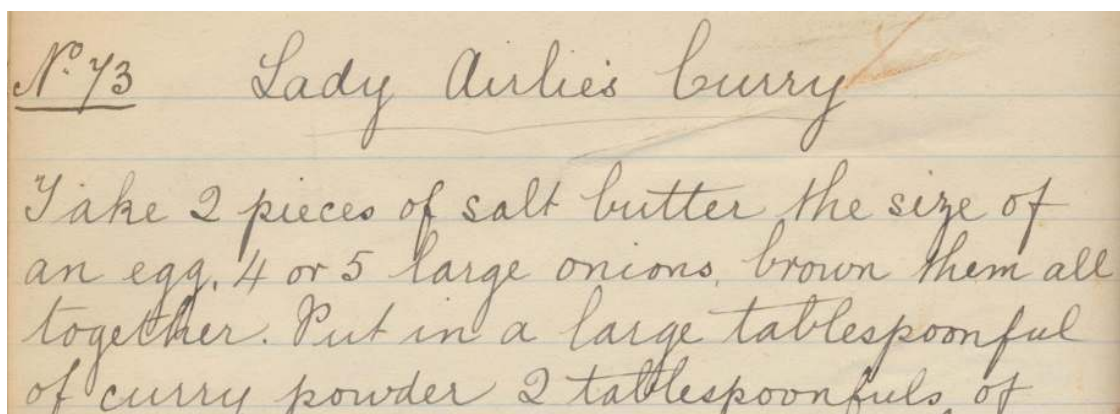 Nº 73 Lady Airlie's Curry
Take 2 pieces of salt butter the size of
an egg, 4 or 5 large onions, brown them all
together. Put in a large tablespoonful
of curry powder 2 tablespoonfuls of